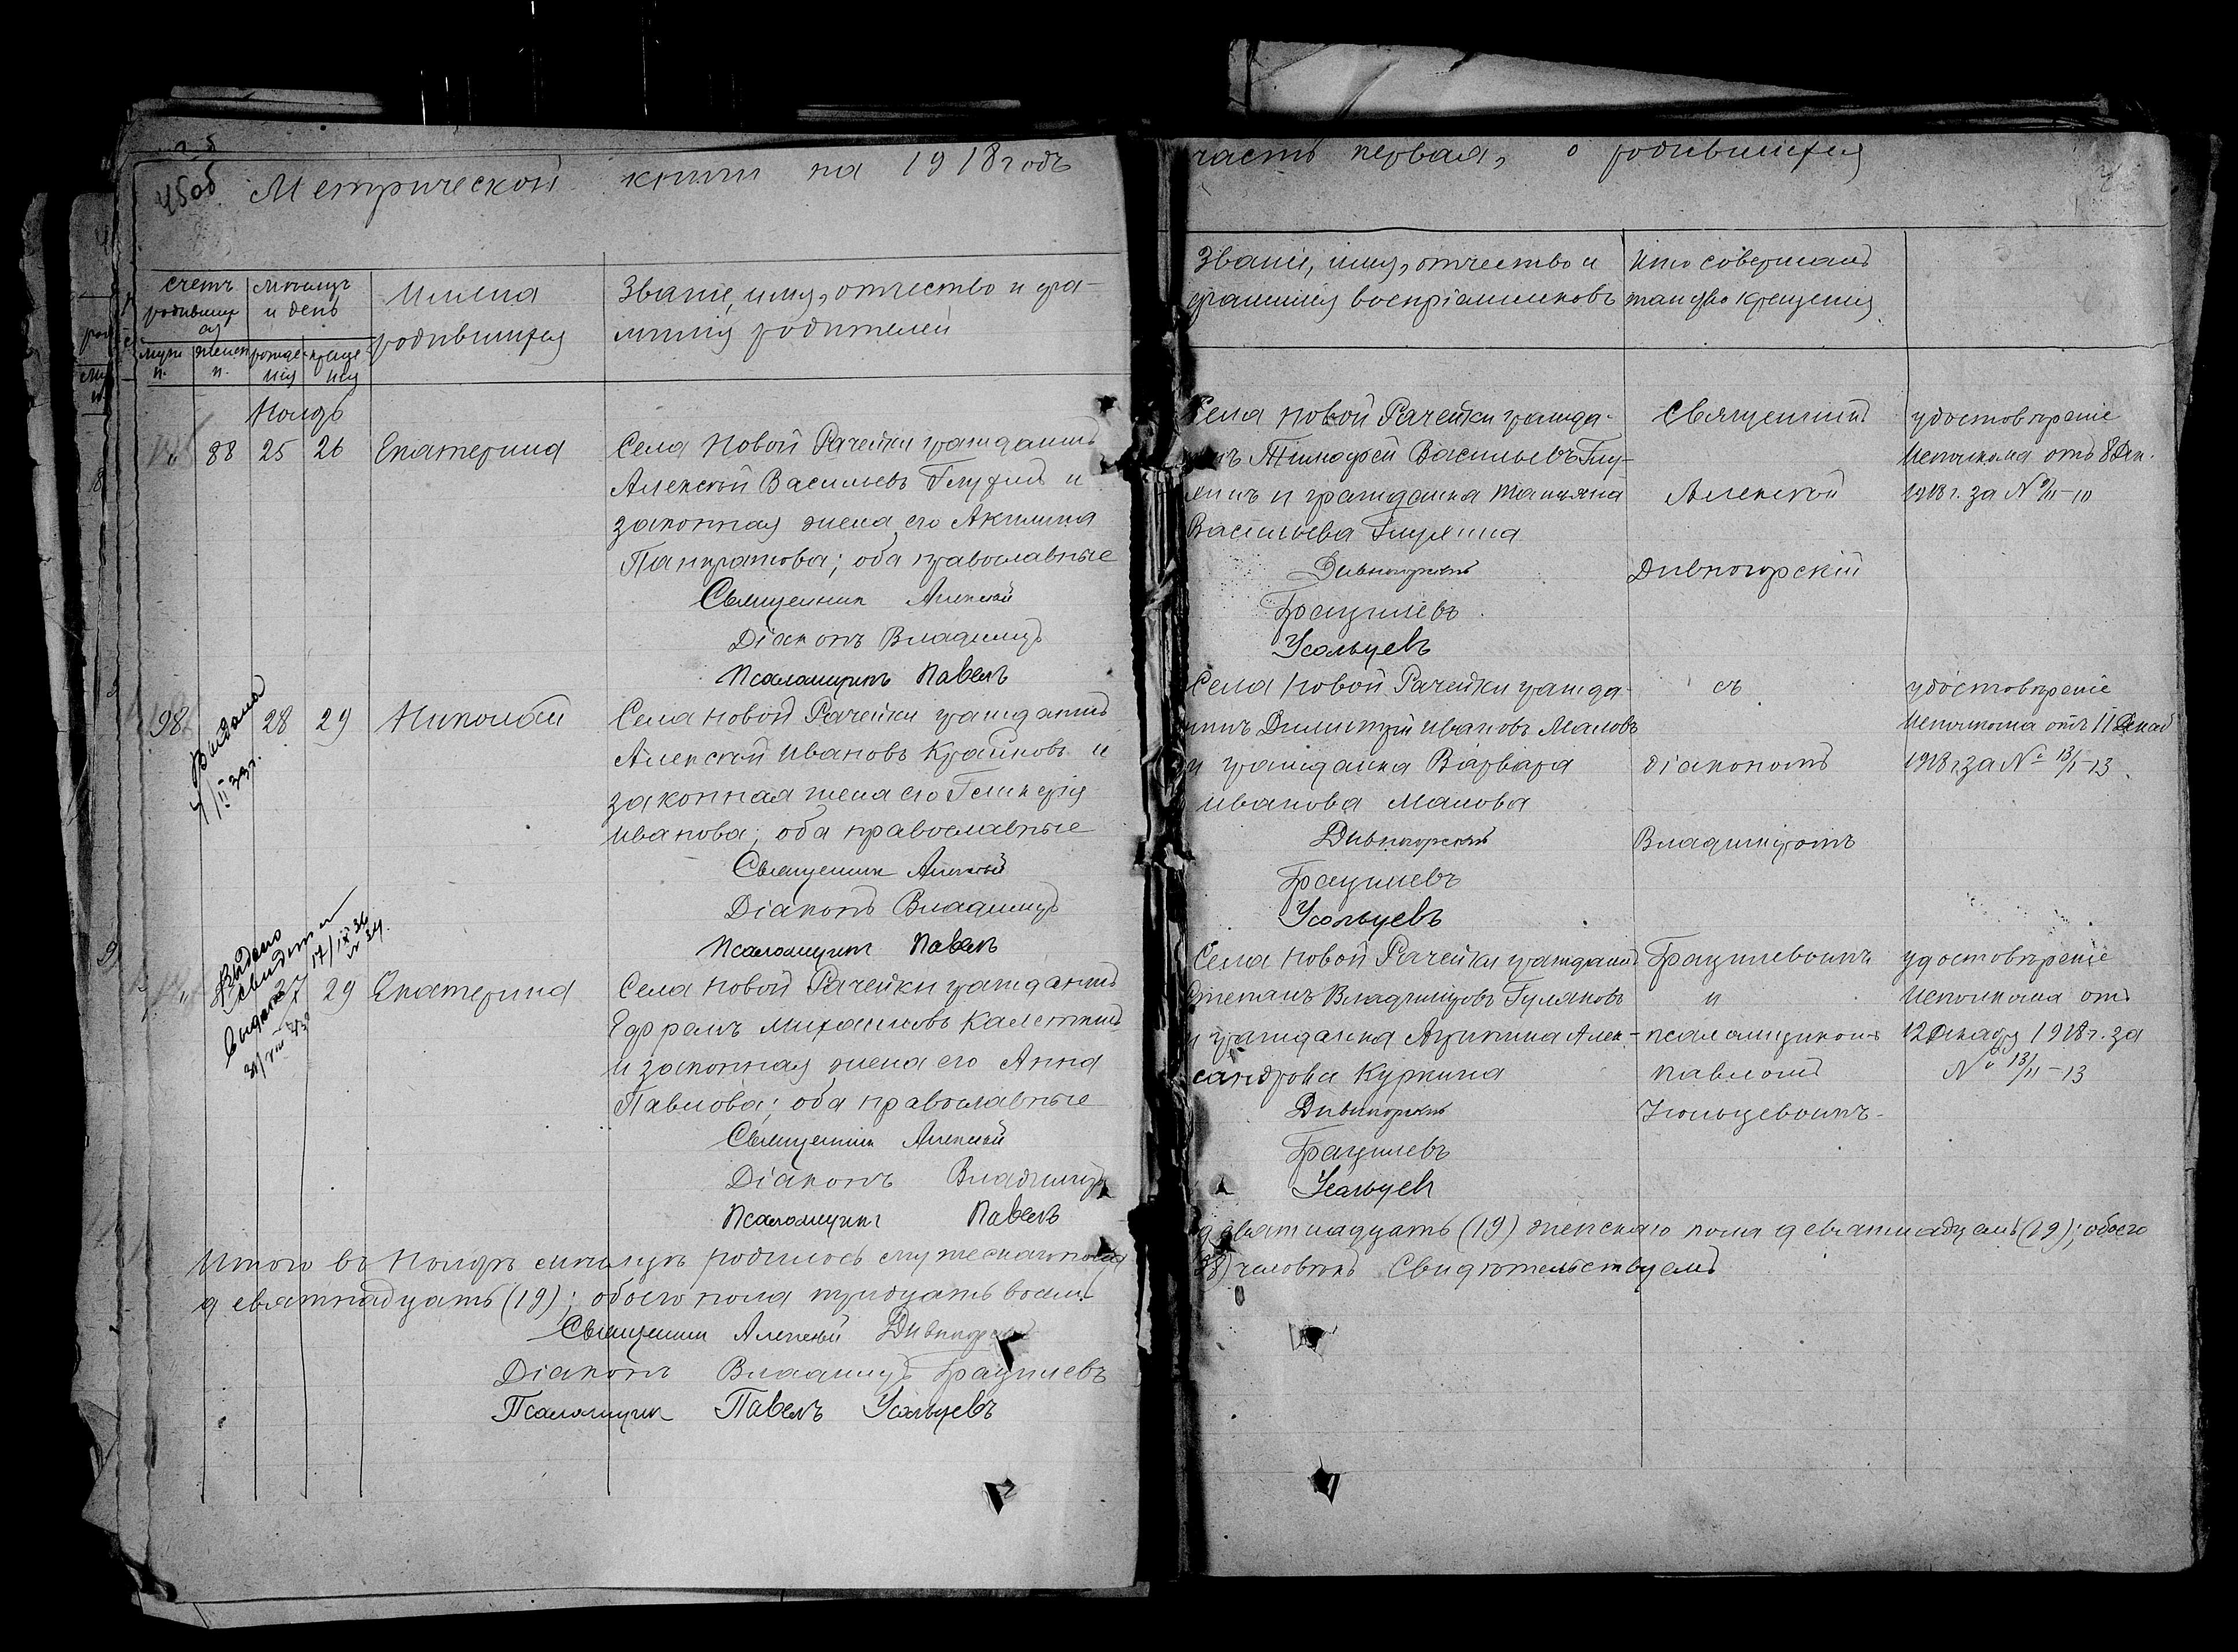 45об
Метрической книги на 1918 годъ
часть первая, о родившихся
счетъ
родивших
ся
мѣсяцъ
и день
Имена
родившихся
Званіе, имя, отчество и фа-
милія родителей
муж
п.
женск
п.
рожде-
нія
креще-
нія
Званіе, имя, отчество и
фамилія воспріемниковъ
Кто совершалъ
таинство крещенія
Ноябрь
88 25 26 Екатерина
Села Новой Рачейки гражданинъ
Алексѣй Васильевъ и
законная жена его Акилина
Панкратова; оба православные
Священник Алексѣй
Діаконъ Владимиръ
Псаломщикъ Павелъ
Села Новой Рачейки гражда-
нинъ Тимофей Васильевъ
и гражданка Татьяна
Васильева
Дивногорскій
Грацилевъ
Усольцевъ
Священникъ
Алексѣй
Дивногорскій
удостовѣреніе
Исполкома отъ 8 Дек.
1918 г. за №
98 28 29 Николай
Выдана
Села Новой Рачейки гражданинъ
Алексѣй Ивановъ Крайновъ и
законная жена его Гликерія
Иванова; оба православные
Священник Алексѣй
Діаконъ Владимиръ
Псаломщикъ Павелъ
Села Новой Рачейки гражда-
нинъ Димитрій Ивановъ Маловъ
и гражданка Варвара
Иванова Малова
Дивногорскій
Грацилевъ
Усольцевъ
съ
діакономъ
Владимиромъ
удостовѣреніе
Исполкома отъ 11 Декаб
1918 г. за № 13
Выдано
29 Екатерина
Села Новой Рачейки гражданинъ
Ефремъ Михайловъ
и законная жена его Анна
Павлова; оба православные
Священник Алексѣй
Діаконъ Владимиръ
Псаломщикъ Павелъ
Села Новой Рачейки гражданинъ
Степанъ Владимировъ Гуляковъ
и гражданка Агрипина Алек-
сандрова Куркина
Дивногорскій
Грацилевъ
Усольцев
Грацилевымъ
и
псаломщикомъ
Павломъ
Усольцевымъ.
удостовѣреніе
Исполкома отъ
12 Декабр 1918 г. за
№ 13/11-13
Итого въ Ноябрѣ мѣсяцѣ родилось мужескаго пола
девятнадцать (19) женскаго пола девятнадцать (19); обоего
девятнадцать (19); обоего пола тридцать восемь
38) человѣкъ Свидѣтельствуемъ
Священник Алексѣй Дивногорскій
Діаконъ Владимиръ Грацилевъ
Псаломщик Павелъ Усольцевъ